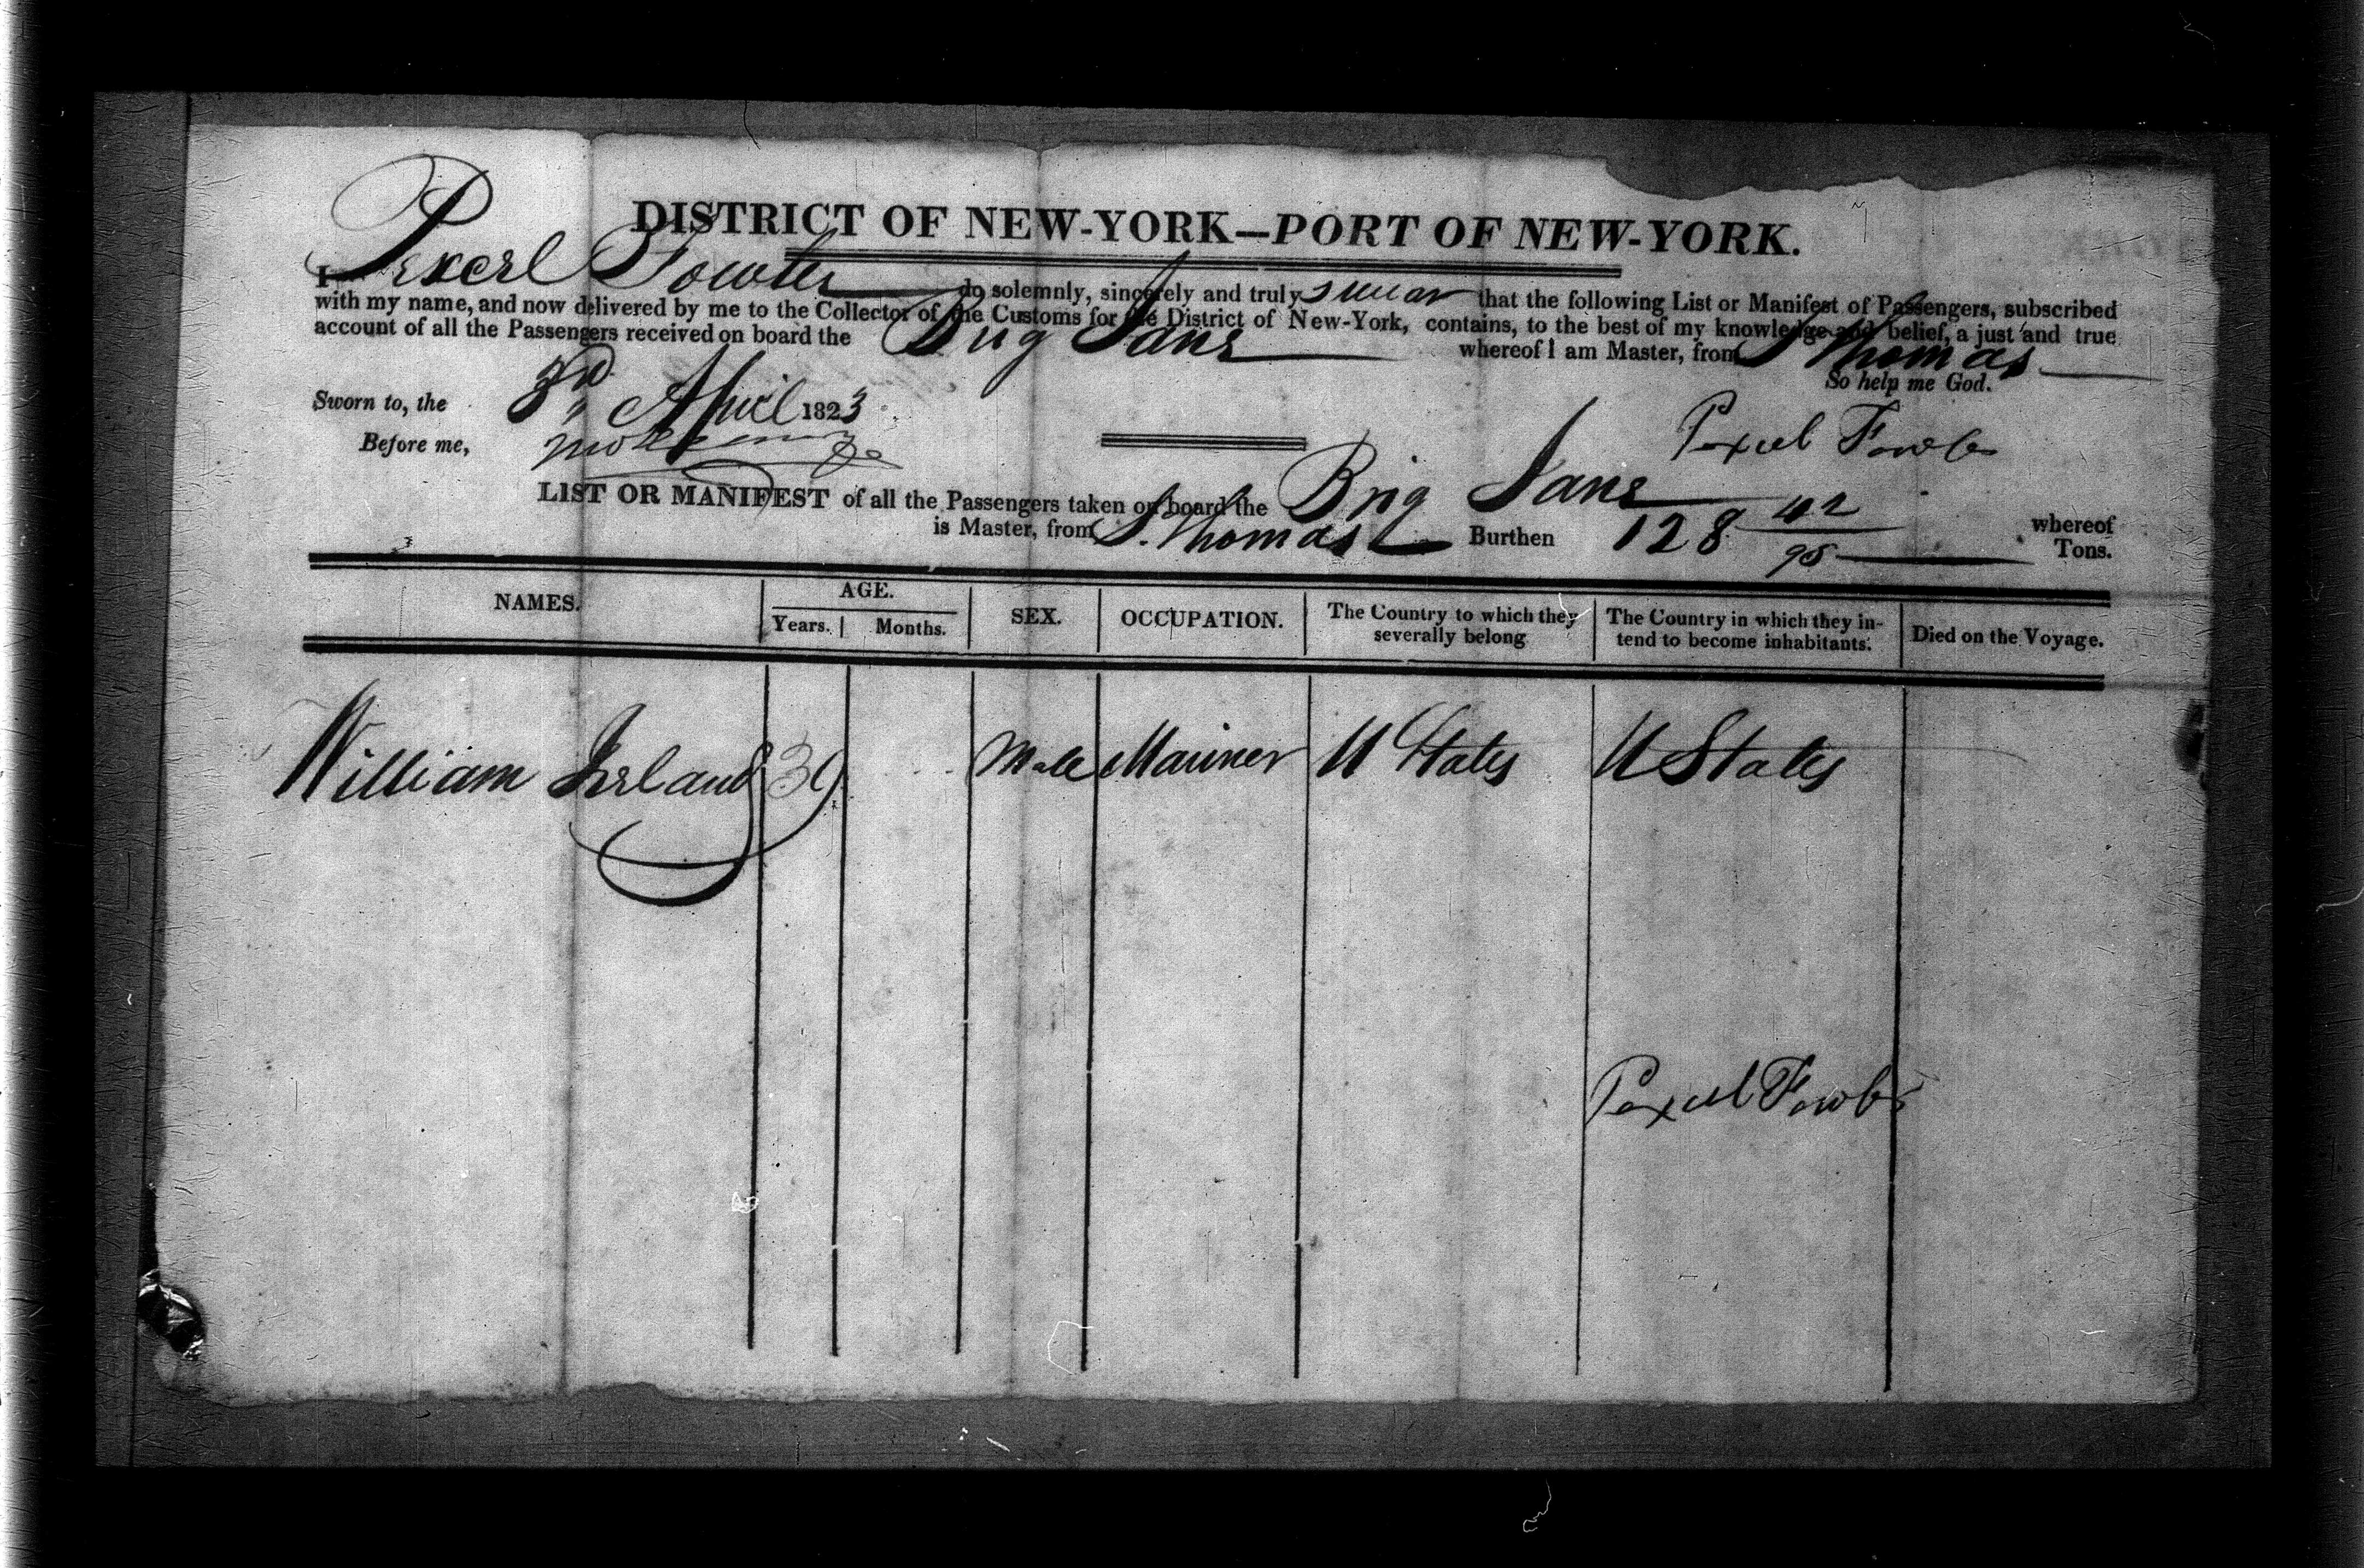 DISTRICT OF NEW-YORK—PORT OF NEW-YORK.
I Pexcel Fowler do solemnly, sincerely and truly swear that the following List or Manifest of Passengers, subscribed
with my name, and now delivered by me to the Collector of the Customs for the District of New-York, contains, to the best of my knowledge and belief, a just and true
account of all the Passengers received on board the Brig Jane whereof I am Master, from St Thomas
So help me God.
Sworn to, the 3rd April 1823
Before me,
Pexcel Fowler
LIST OR MANIFEST of all the Passengers taken on board the Brig Jane whereof
is Master, from St. Thomas Burthen 128 42/95 Tons.
NAMES. AGE. SEX. OCCUPATION. The Country to which they severally belong The Country in which they intend to become inhabitants. Died on the Voyage.
Years. Months.
William Ireland 39 Male Mariner U States U States
Pexcel Fowler